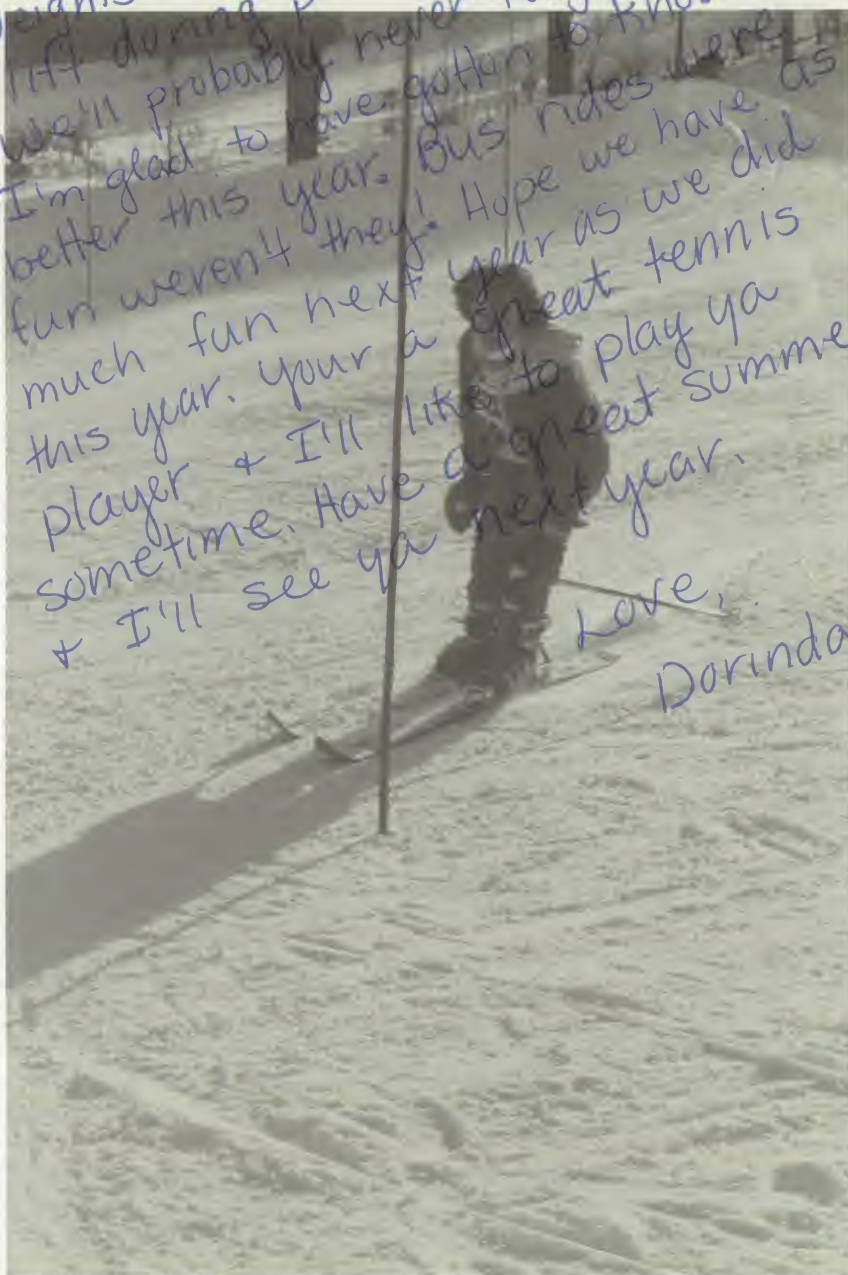 lift during
we'll probably never
I'm glad to have gotton to know
better this year. Bus rides were
fun weren't they! Hope we have as
much fun next year as we did
this year. Your a great tennis
player & I'll like to play ya
sometime. Have a great summe
& I'll see ya next year.
Love,
Dorinda